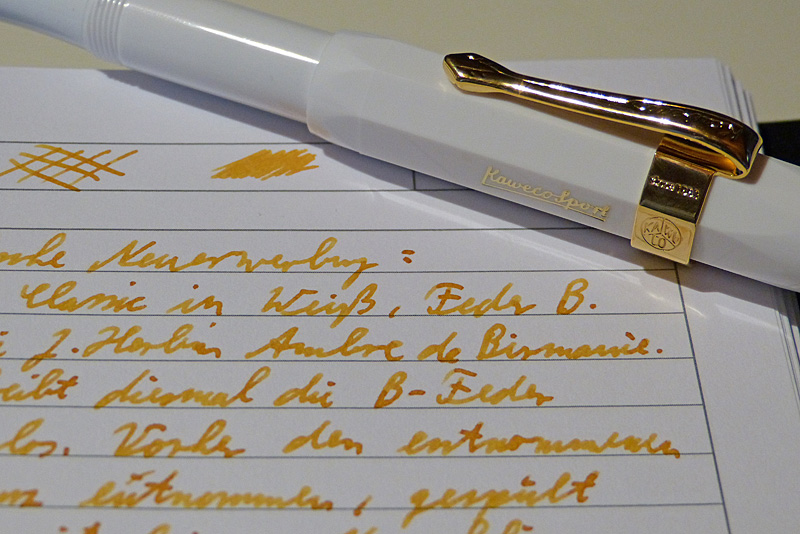 Kaweco Sport
KAWE
CO
Neuerwerbung:
Classic in Weiß, Feder B.
J. Herbin Ambre de Birmanie.
eibt diesmal die B-Feder
los. Vorher den entnommenen
entnommen, gespült